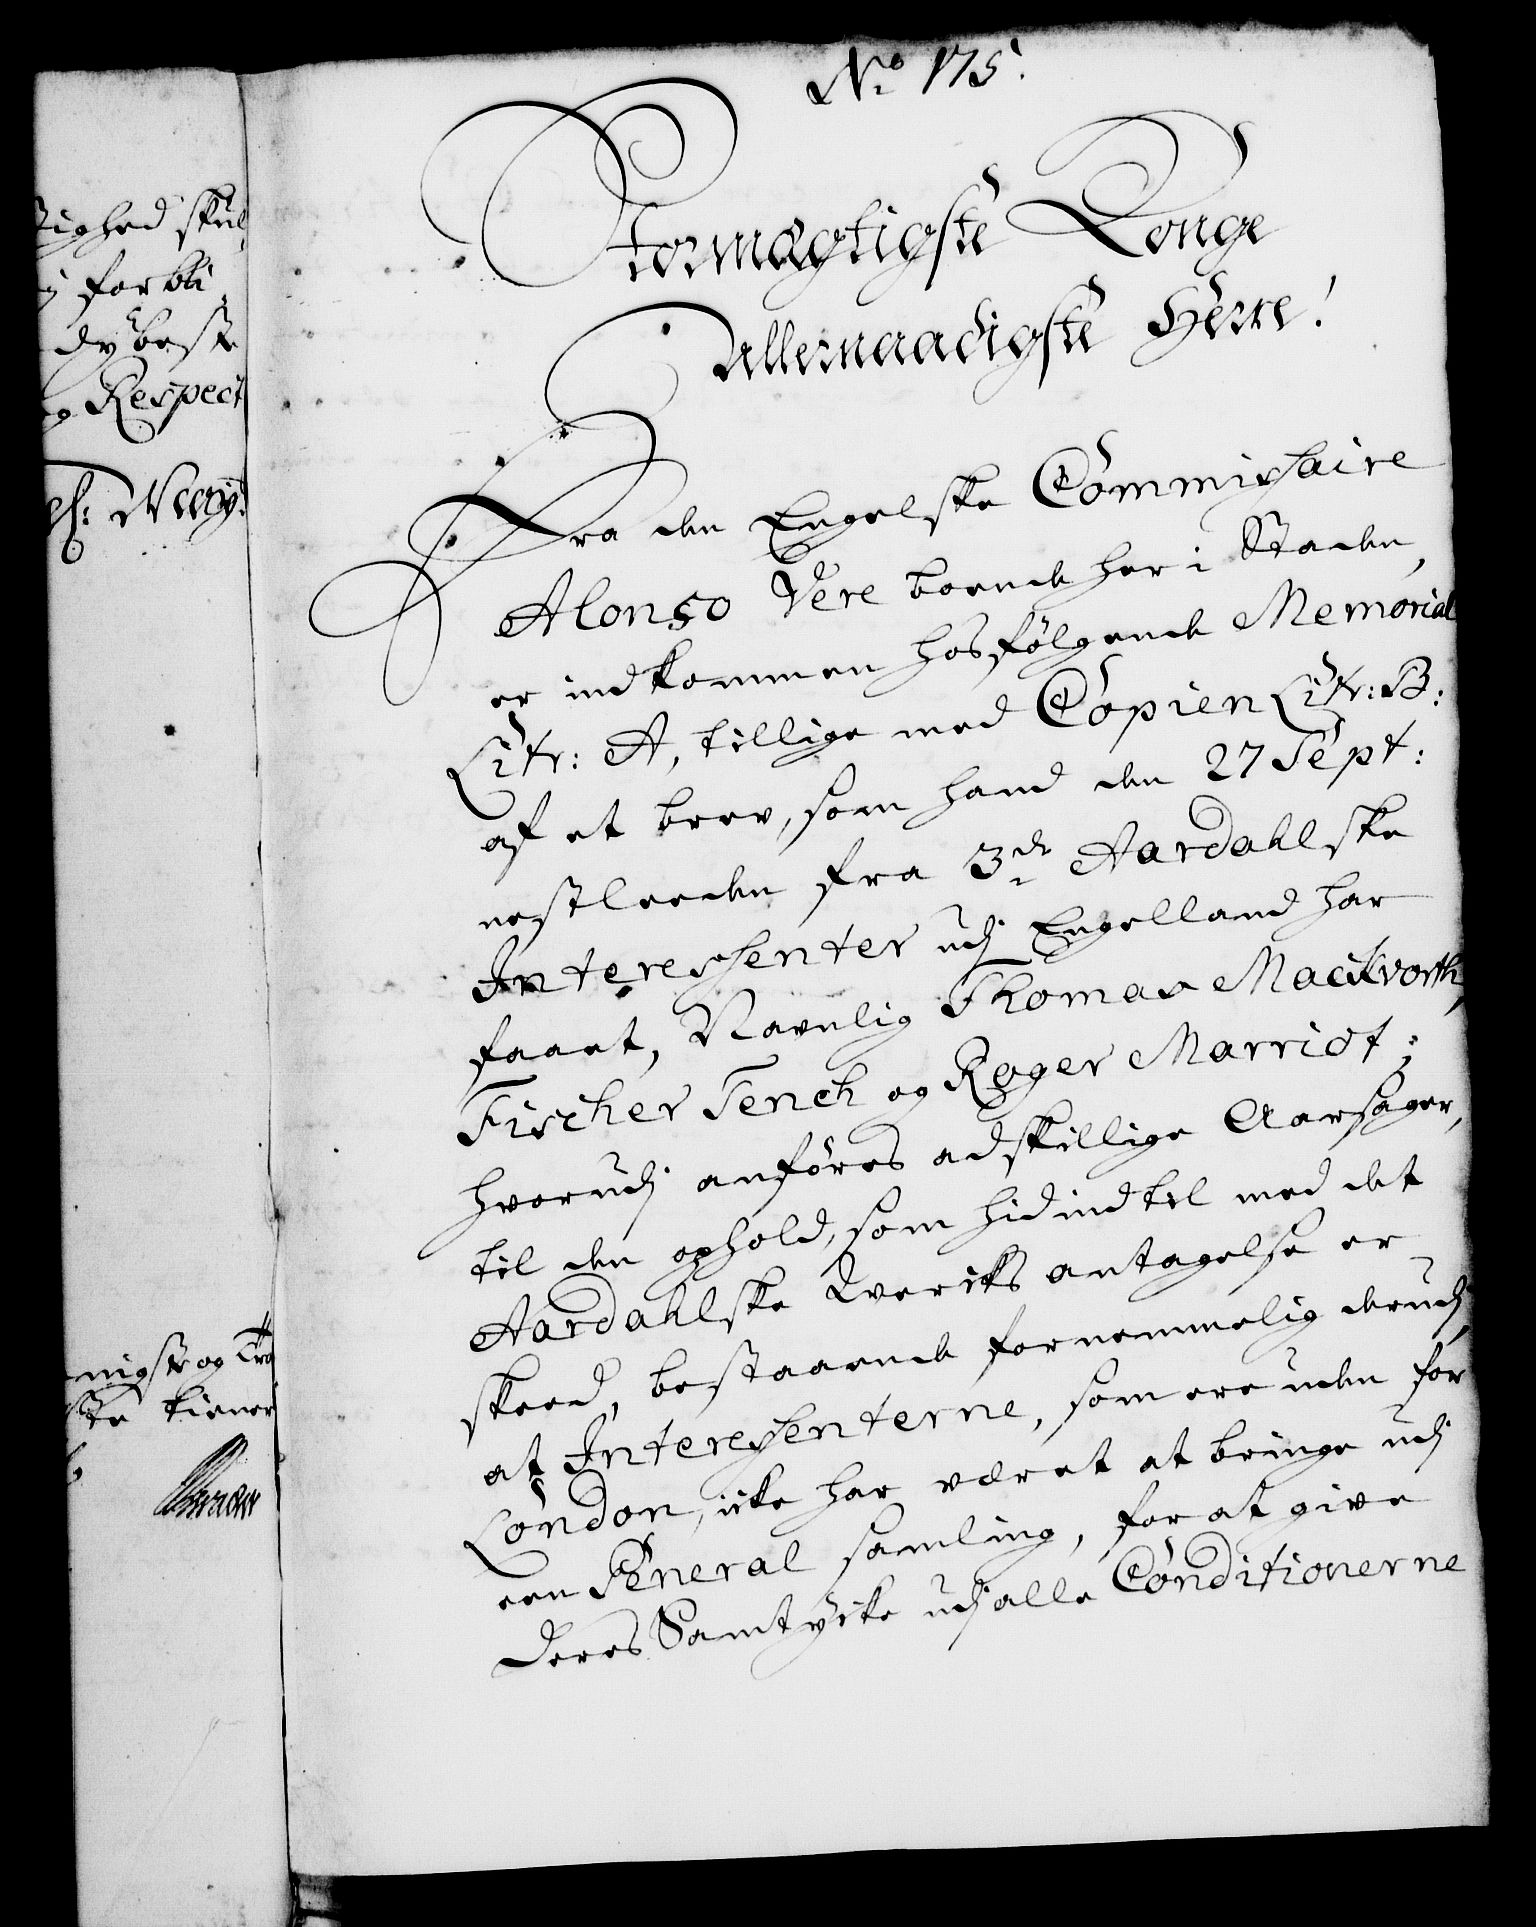 No 175.
Stormægtigste Konge
Allernaadigste Herre!
Fra den Engelske Commissaire
Alonso Vere boende her i Staden,
er indkommen hosfølgende Memorial
Litr: A, tillige med Copien Litr: B:
af et brev, som hand den 27 Sept:
nestleeden fra 3de Aardahlske
Interessenter udj Engelland har
faaet, Navnlig Thomas Mackvorth,
Fischer Tench og Roger Marriot;
hvorudj anføres adskillige Aarsager,
til den ophold, som hidindtil med det
Aardahlske Kverks antagelse er
skeed, bestaaende fornemmelig derudj,
at Interessenterne, som ere uden for
London, icke har været at bringe udj
een General samling, for at give
deres Samtycke udj alle Conditionerne
ighed skul
forbli
dybeste
og Respect
nigste og Tro
ste tiener